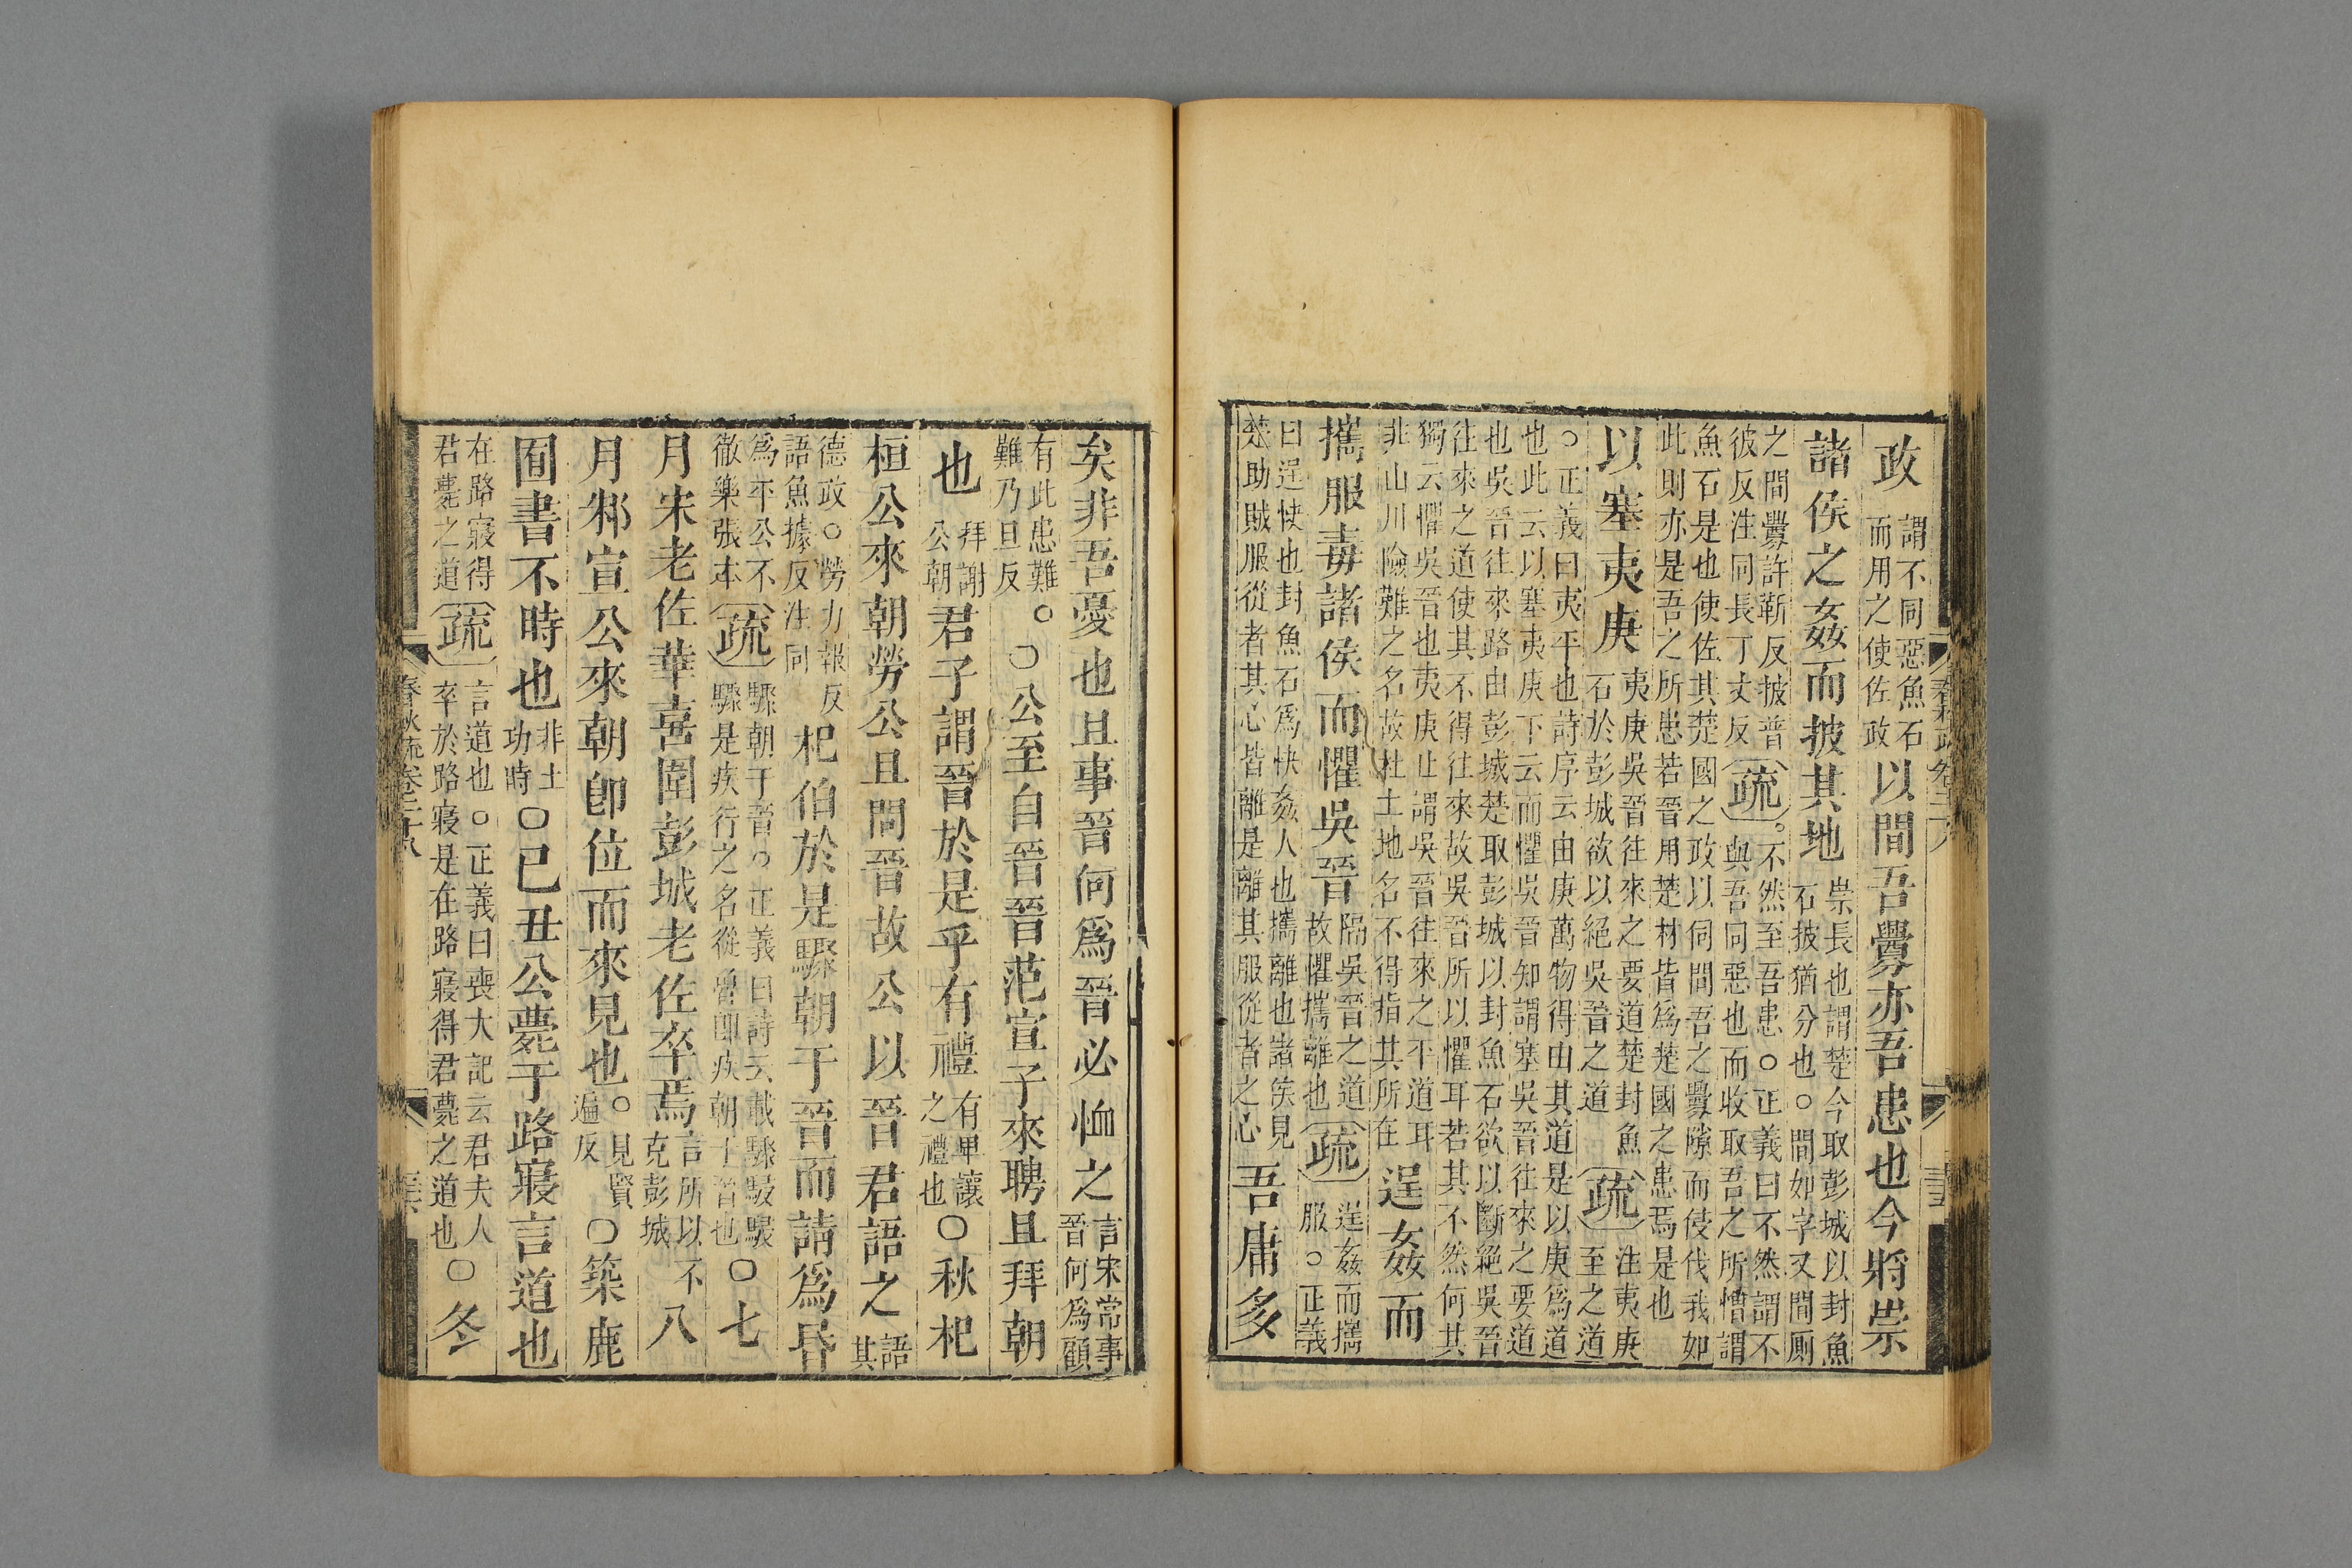 政謂不同惡魚石而用之使佐政以間吾釁亦吾患也今將崇
諸侯之姦而披其地崇長也謂楚今取彭城以封魚石披猶分也○間如字又間厠
之間釁許靳反披普彼反注同長丁丈反疏不然至吾患○正義曰不然謂不與吾同惡也而收取吾之所憎謂
魚石是也使佐其楚國之政以伺間吾之釁隙而侵伐我如此則亦是吾之所患若晉用楚材皆爲楚國之患焉是也
以塞夷庚夷庚吳晉往來之要道楚封魚石於彭城欲以絕吳晉之道疏注夷庚至之道
○正義曰夷平也詩序云由庚萬物得由其道是以庚爲道也此云以塞夷庚下云而懼吳晉知謂塞吳晉往來之要道
也吳晉往來路由彭城楚取彭城以封魚石欲以斷絕吳晉往來之道使其不得往來故吳晉所以懼耳若其不然何其
獨云懼吳晉也夷庚止謂吳晉往來之平道耳非山川險難之名故杜土地名不得指其所在逞姦而
攜服毒諸侯而懼吳晉隔吳晉之道故懼攜離也疏逞姦而攜服○正義
曰逞快也封魚石爲快姦人也攜離也諸侯見楚助賊服從者其心皆離是離其服從者之心吾庸多
矣非吾憂也且事晉何爲晉必恤之言宋常事晉何爲顧
有此患難○難乃旦反○公至自晉晉范宣子來聘且拜朝
也拜謝公朝君子謂晉於是乎有禮有卑讓之禮也○秋杞
桓公來朝勞公且問晉故公以晉君語之語其
德政○勞力報反語魚據反注同杞伯於是驟朝于晉而請爲昏
爲平公不徹樂張本疏驟朝于晉○正義曰詩云載驟駸駸驟是疾行之名從魯即疾朝于晉也○七
月宋老佐華喜圍彭城老佐卒焉言所以不克彭城八
月邾宣公來朝卽位而來見也○見賢遍反○築鹿
囿書不時也非土功時○己丑公薨于路寢言道也
在路寢得君薨之道疏言道也○正義曰喪大記云君夫人卒於路寢是在路寢得君薨之道也○冬
春秋疏卷二十八